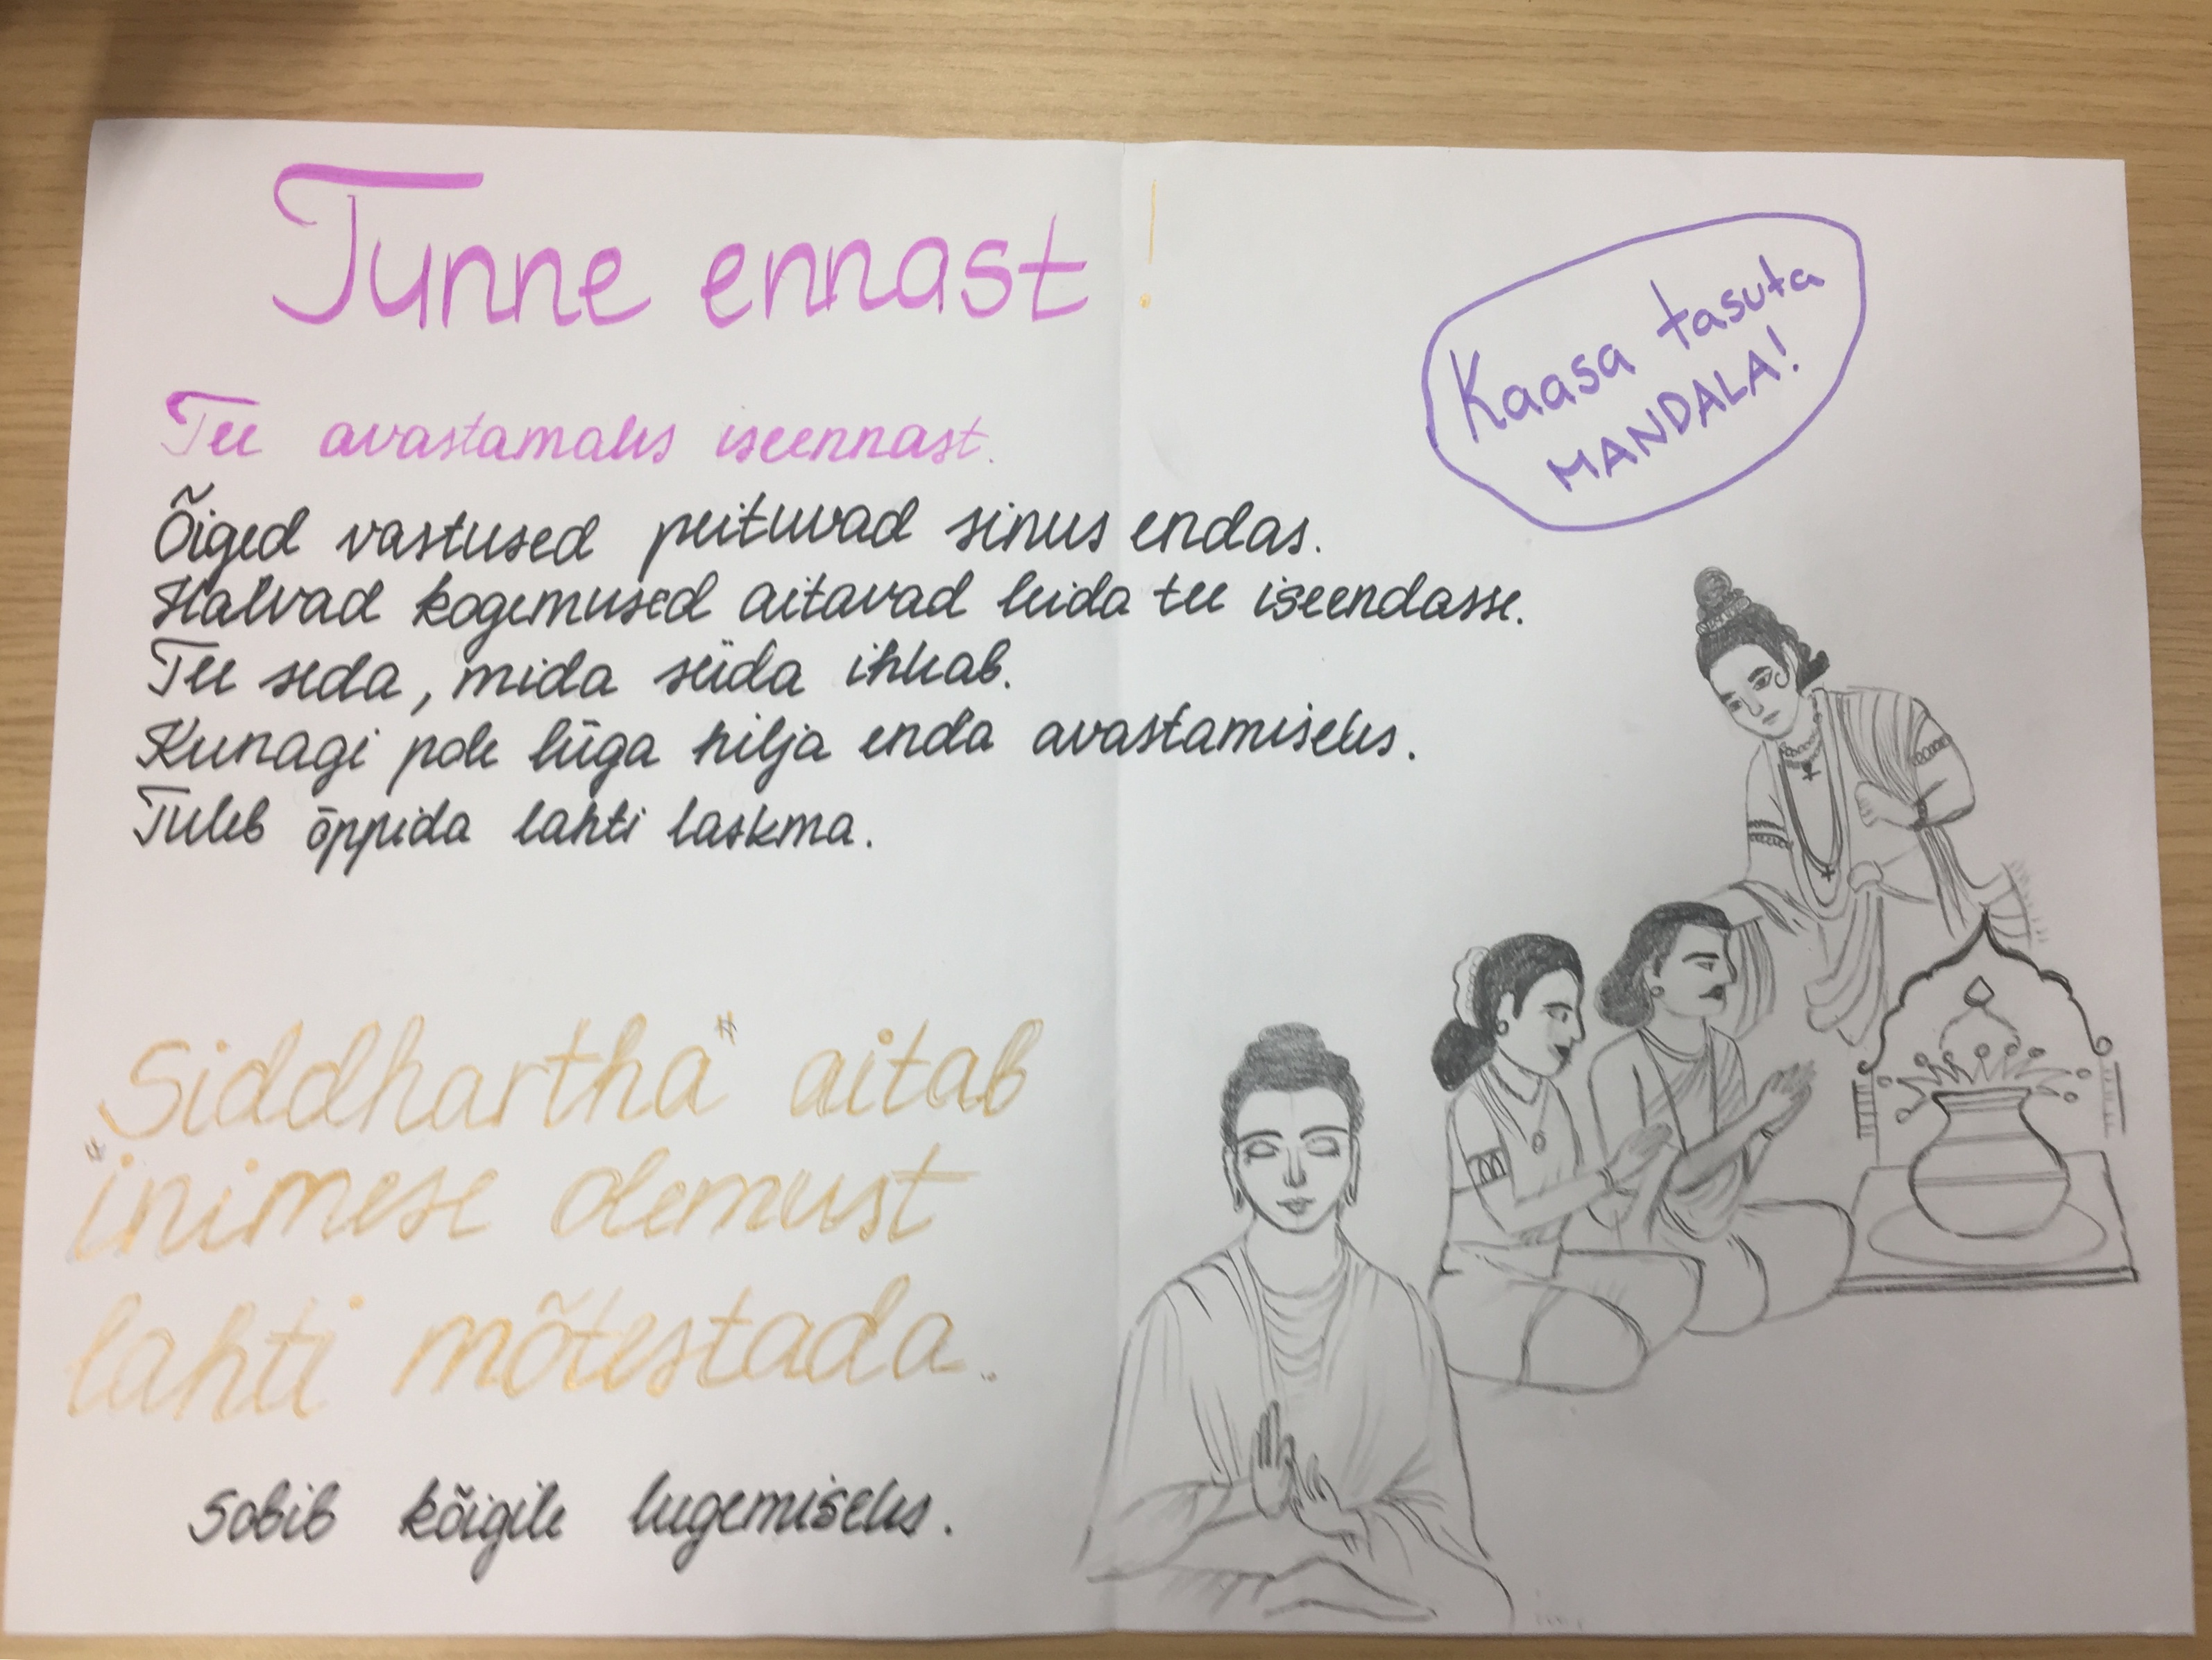 Tunne ennast!
Kaasa tasuta
MANDALA!
Tee avastamaks iseennast.
Õiged vastused peituvad sinus endas.
Halvad kogemused aitavad leida tee iseendasse.
Tee seda, mida süda ihkab.
Kunagi pole liiga hilja enda avastamiseks.
Tuleb õppida lahti laskma.
"Siddhartha" aitab
inimese olemust
lahti mõtestada.
Sobib kõigile lugemiseks.